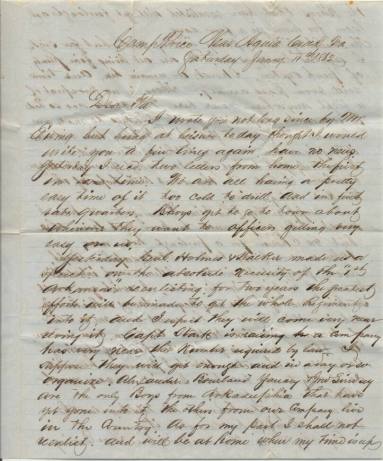 Camp Price Near Aquia Creek Va
Saturday Jany 11th 1862
Dear
I wrote you not long since by Mr
but being at leisure to day thought I would
write you a few lines again have no news
Yesterday I rec'd two letters from home the first
in some time. We are all having a pretty
easy time of it too cold to drill and in first
rate Quarters. Boys get to go to town about
whenever they want to officers getting very
easy on us.
Yesterday Holmes & Walker made us a
speech on the absolute necessity of the
Arkansas reenlisting for two years the greatest
efforts will be made to get the whole Regiment
into it, and I expect they will come very near
doing it. Capt is raising a company
has very near the number required by law I
suppose they will get enough and in a day or so
organize. Alexander Rowland
are the only Boys from Arkadelphia that have
yet gone into it, the others from our Company live
in the Country. As for my part I shall not
reenlist, and will be at home when my time is up